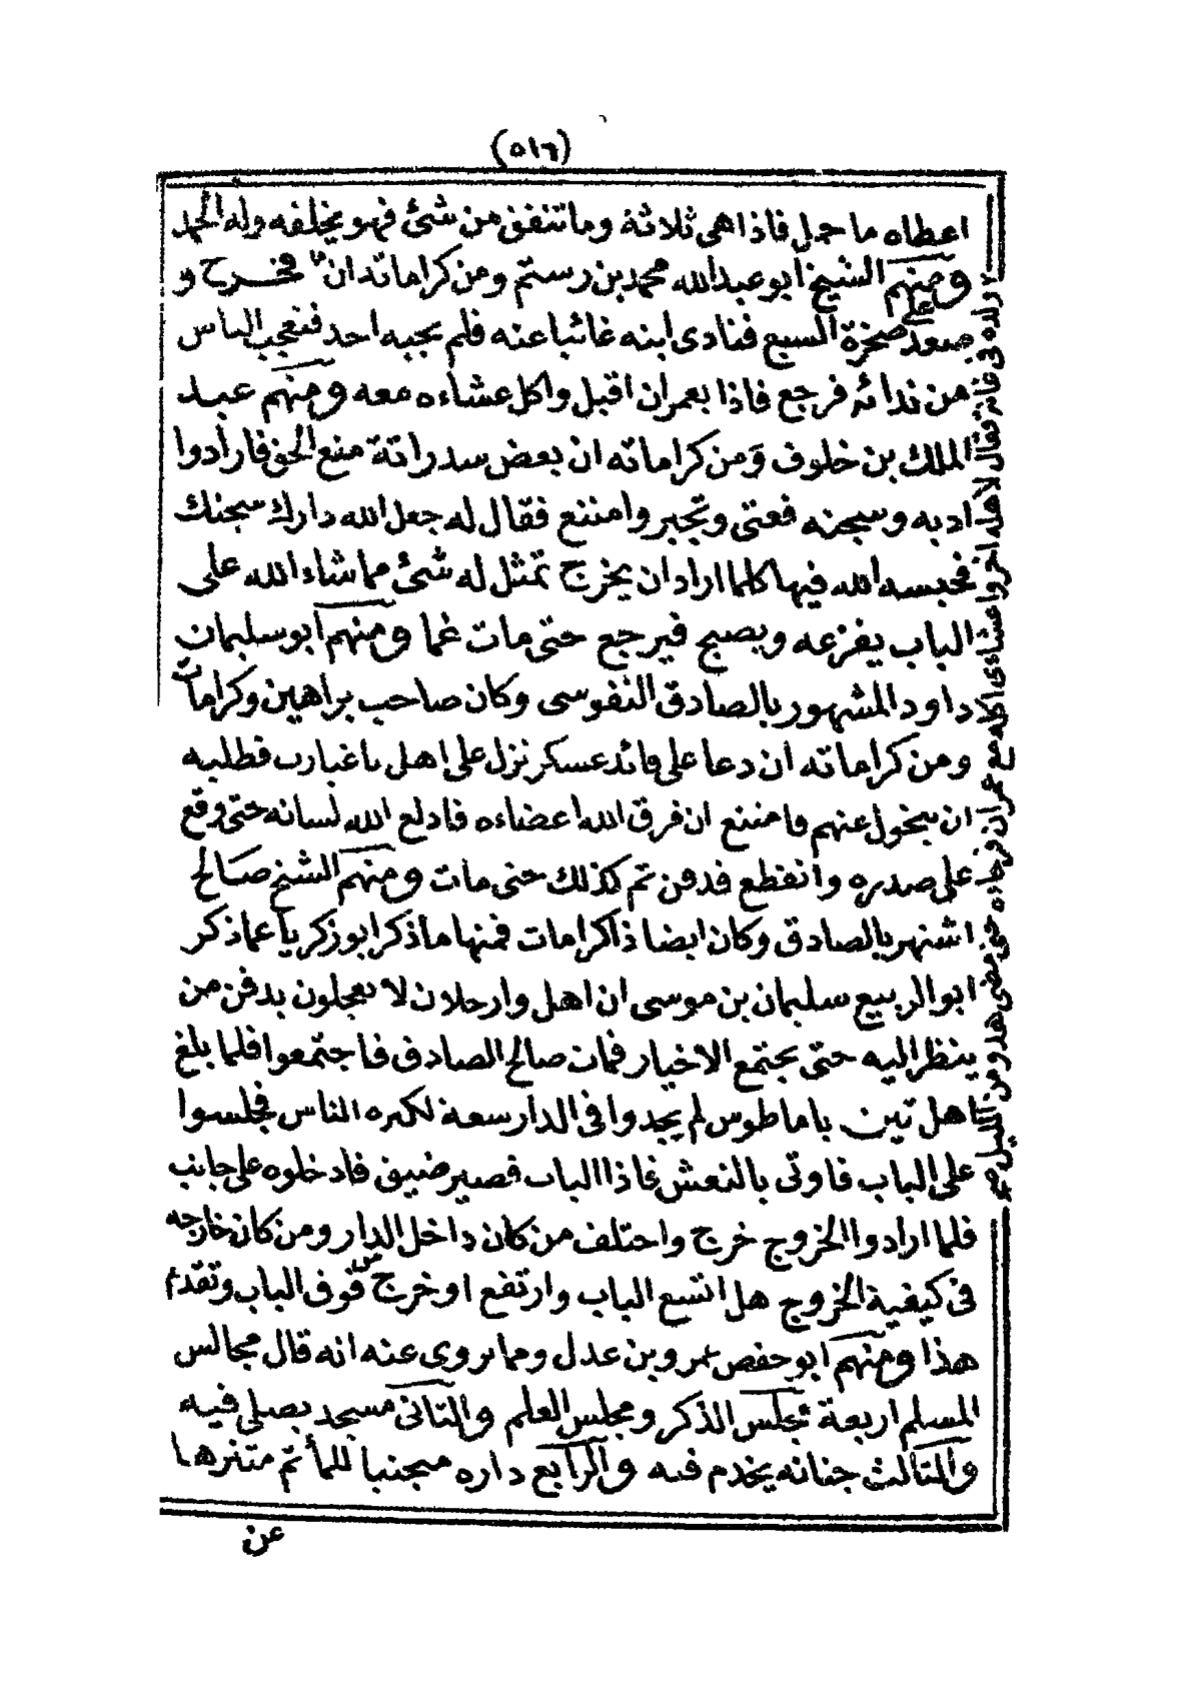 (٥١٦)
اعطاه ما حمل فاذا هى ثلاثة وما تنفق من شئ فهو يخلفه وله الحمد
ومنهم الشيخ ابو عبد الله محمد بن رستم ومن كراماته ان فخرج و
صعد على صخرة السبع فنادى ابنه غائبا عنه فلم يجبه احد فتعجب الناس
من ندائه فرجع فاذا بعمران اقبل واكل عشاءه معه ومنهم عبد
الملك بن خلوف ومن كراماته ان بعض سدراتة منع الحق فارادوا
ادبه وسجنه فعتى وتجبر وامتنع فقال له جعل الله دارك سجنك
فحبسه الله فيها كلما اراد ان يخرج تمثل له شئ مما شاء الله على
الباب يفزعه ويصيح فيرجع حتى مات غما ومنهم ابو سليمان
داود المشهور بالصادق النفوسى وكان صاحب براهين وكرامات
ومن كراماته ان دعا على قائد عسكر نزل على اهل تاغيارت فطلبه
ان يتحول عنهم فامتنع ان فرق الله اعضاءه فادلع الله لسانه حتى وقع
على صدره وانقطع فدفن ثم كذلك حتى مات ومنهم الشيخ صالح
اشتهر بالصادق وكان ايضا ذا كرامات فمنها ما ذكر ابو زكرياء عما ذكر
ابو الربيع سليمان بن موسى ان اهل وارجلان لا يعجلون بدفن من
ينظر اليه حتى يجتمع الاخيار فمات صالح الصادق فاجتمعوا فلما بلغ
اهل تين باماطوس لم يجدوا فى الدار سعة لكثره الناس فجلسوا
على الباب فاوتى بالنعش فاذا الباب قصير ضيق فادخلوه على جانب
فلما ارادوا الخروج خرج واختلف من كان داخل الدار ومن كان خارجه
فى كيفية الخروج هل اتسع الباب وارتفع او خرج من فوق الباب وتقدم
هذا ومنهم ابو حفص عمرو بن عدل ومما يروى عنه انه قال مجالس
المسلم اربعة مجلس الذكر ومجلس العلم والثانى مسجد يصلى فيه
والثالث جنانه يخدم فيه والرابع داره مجتنبا للمأثم متنزها
عن
ولده فى غانة فقال لاهله اخروا عشاءى اكله مع عمران فجاءه حتى مضى هدو من الليل صح